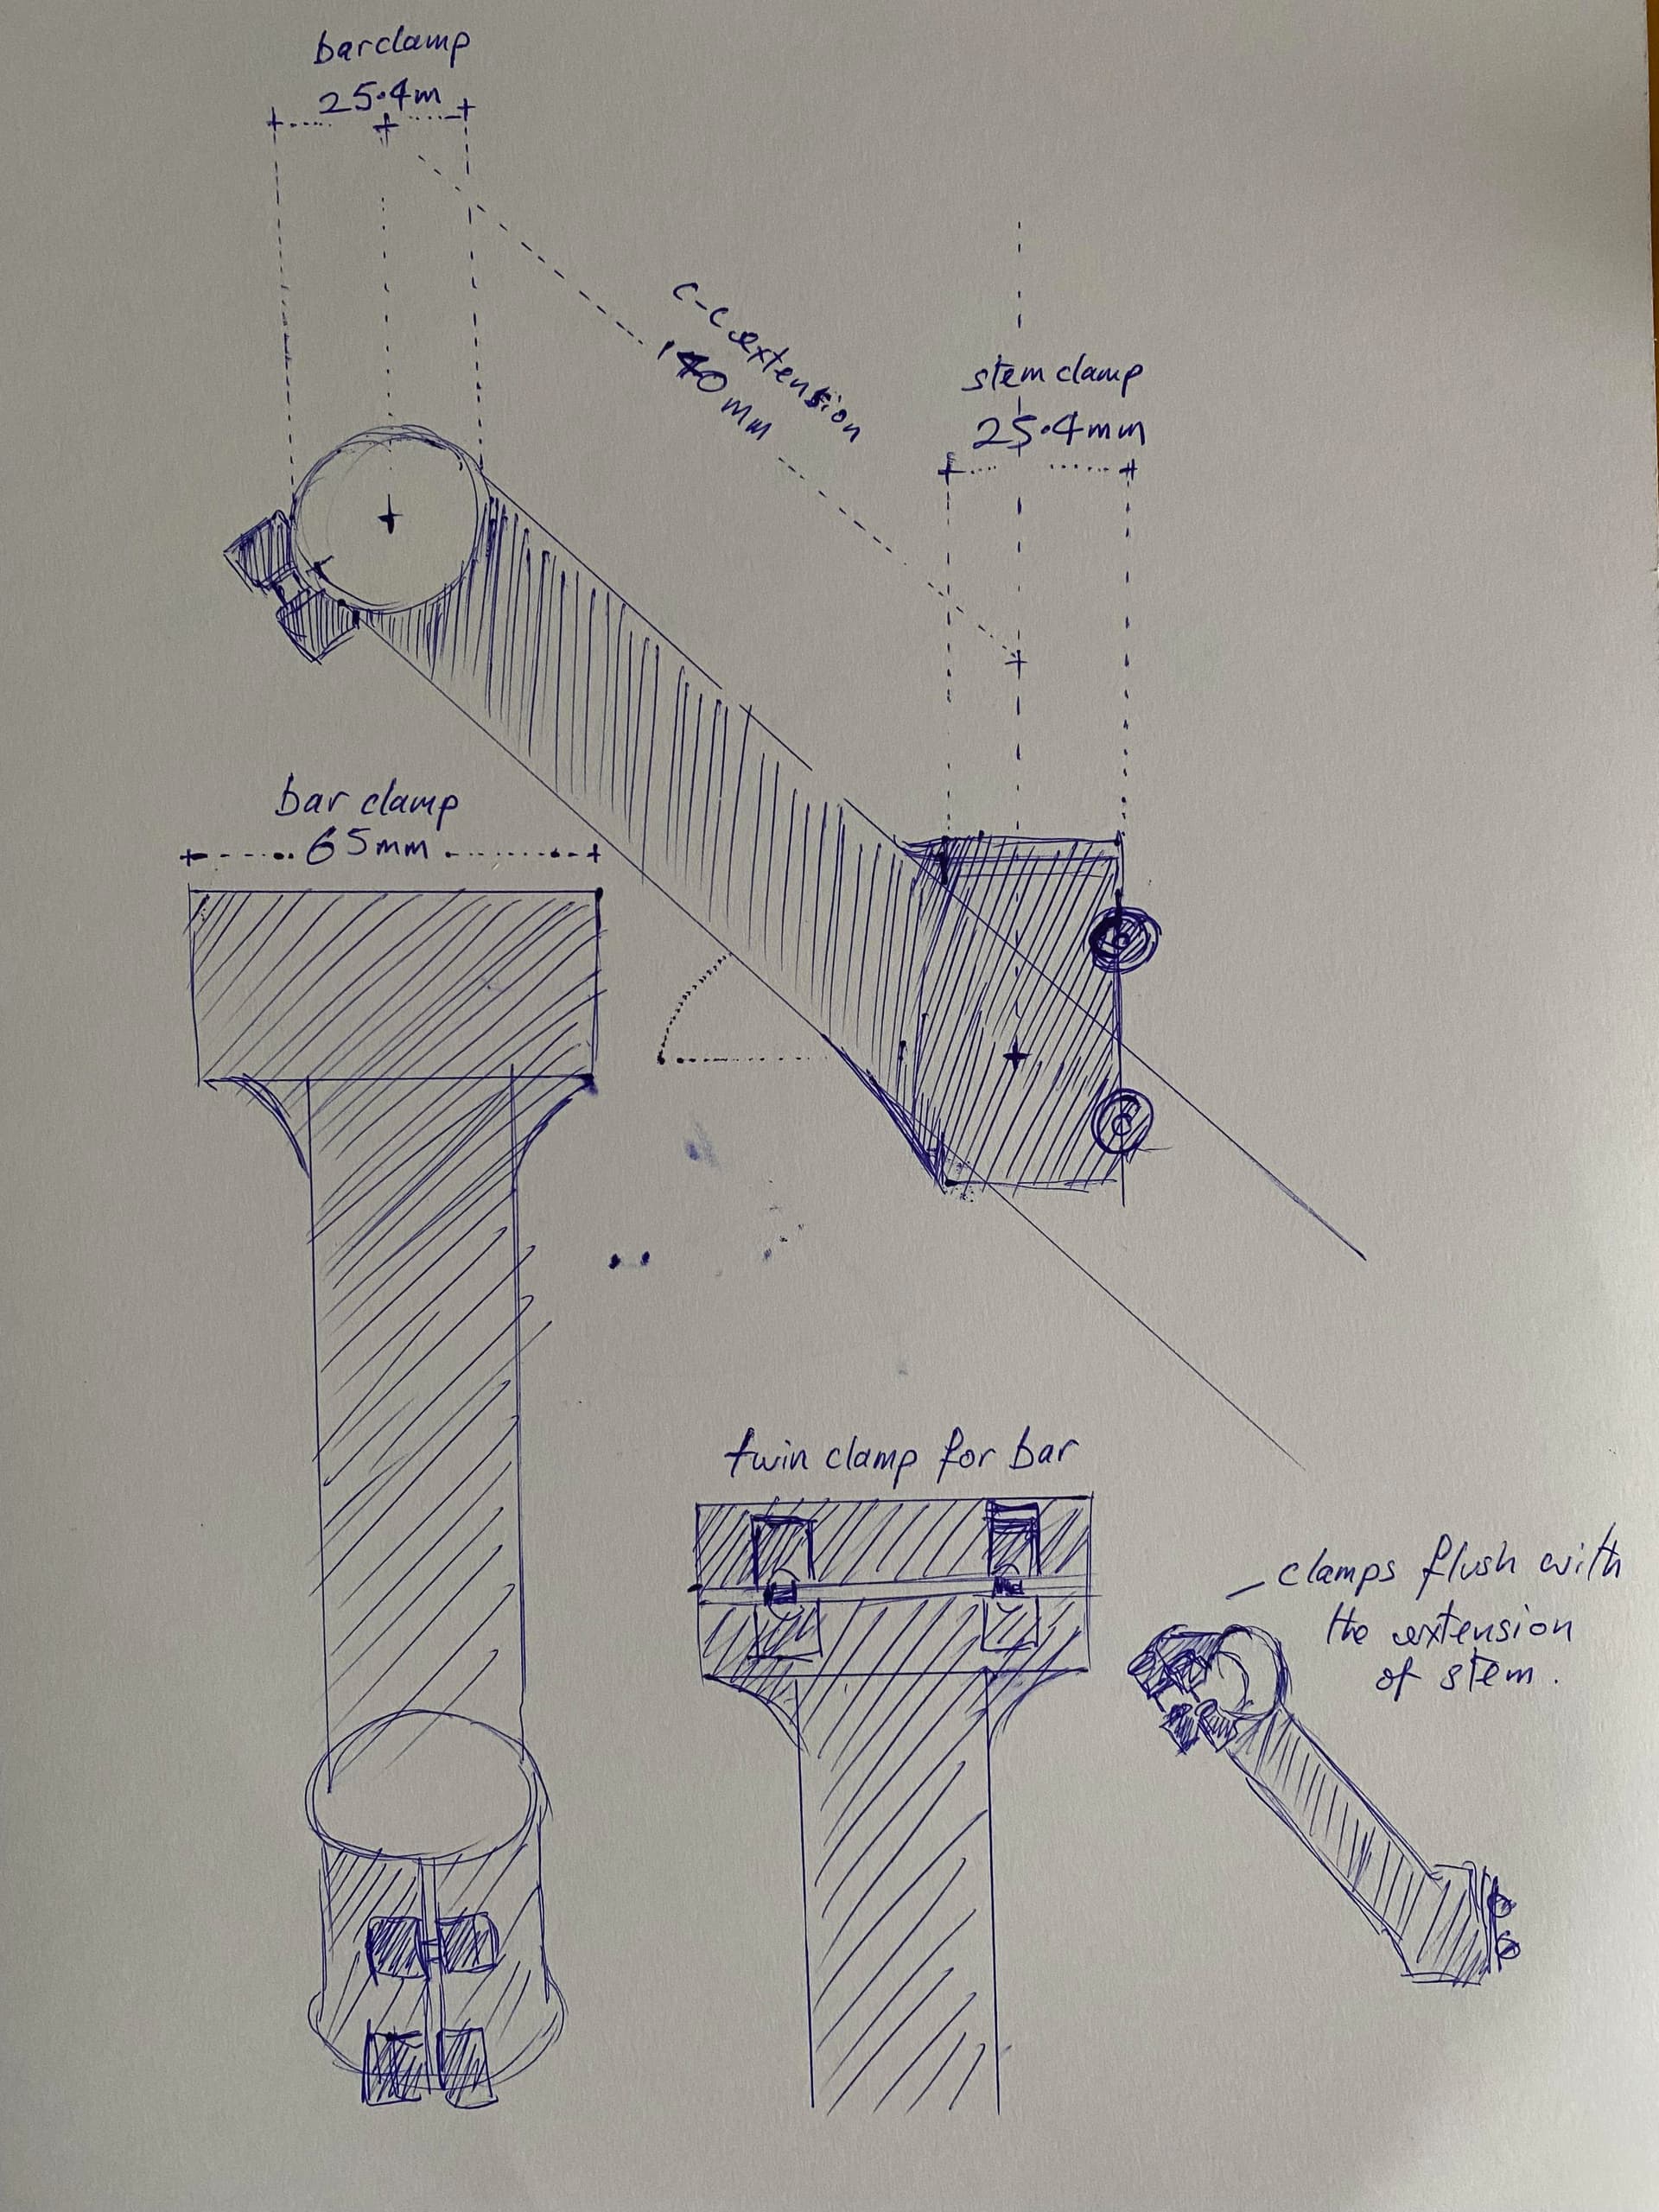 barclamp
25.4m
c-c extension
140mm
stem clamp
25.4mm
bar clamp
65mm
twin clamp for bar
clamps flush with
the extension
of stem.